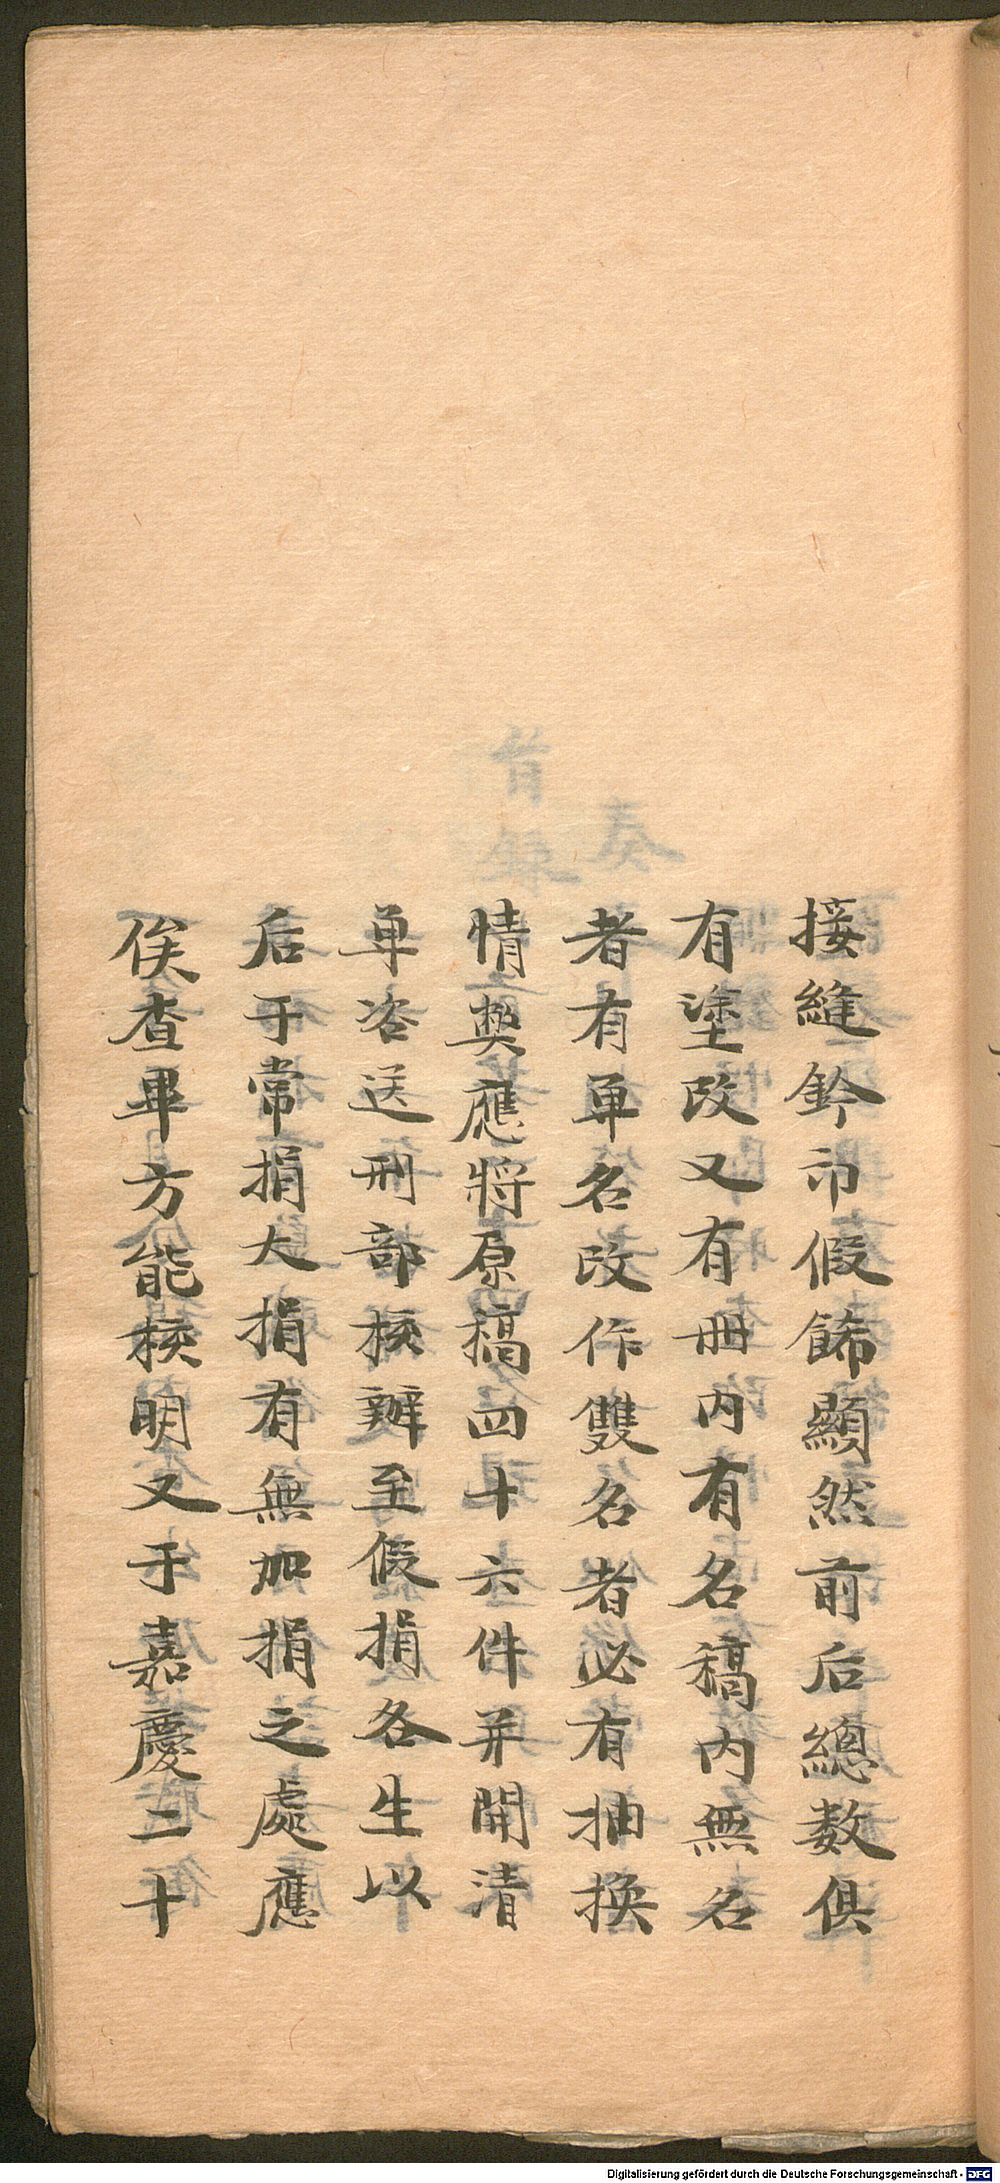 接縫鈐印假飾顯然前后總数俱
有塗改又有冊内有名稿内無名
者有单名改作雙名者必有抽换
情獘應將原稿四十六件并開清
单咨送刑部核辦至假捐各生以
后于常捐大捐有無加捐之處應
俟查畢方能核明又于嘉慶二十
Digitalisierung gefördert durch die Deutsche Forschungsgemeinschaft - DFG